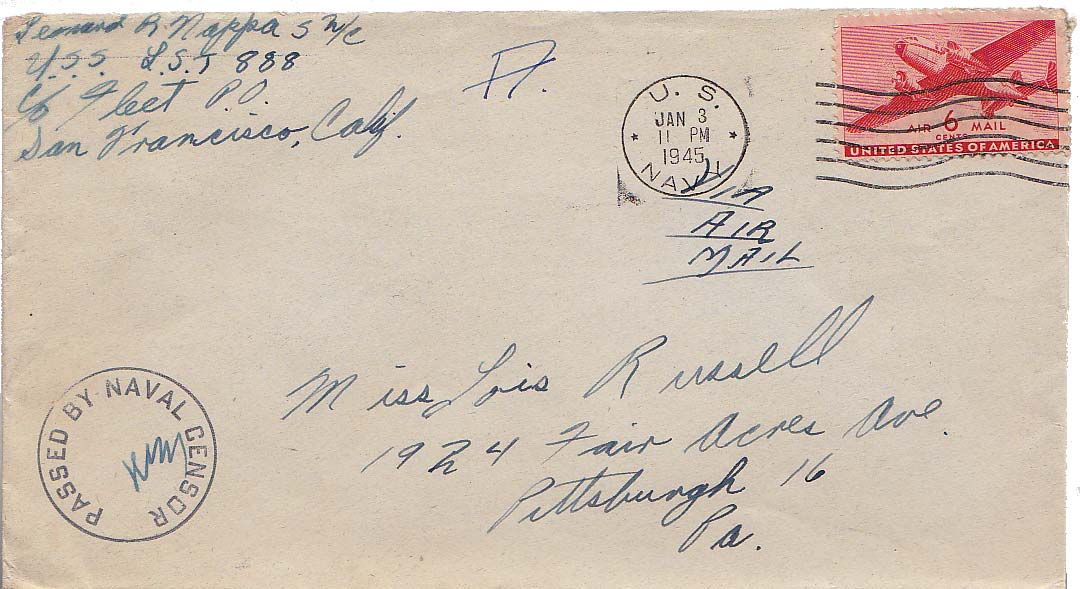 Leonard R Nappa S 2/c
U.S.S. L.S.T 888
C/o Fleet P.O.
San Francisco, Calif.
U. S.
JAN 3
11 PM
1945
NAVY
AIR 6 MAIL
CENTS
UNITED STATES OF AMERICA
VIA
AIR
MAIL
Miss Lois Russell
1924 Fair Acres Ave.
Pittsburgh 16
Pa.
PASSED BY NAVAL CENSOR